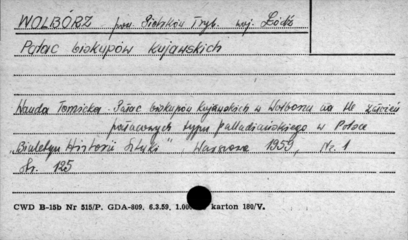 WOLBÓRZ pow. Piotrków Tryb. woj. Łódź
Pałac biskupów kujawskich
Wanda Tomicka - Pałac biskupów kujawskich w Wolborzu na tle założeń
pałacowych typu palladiańskiego w Polsce
„Biuletyn Historii Sztuki" Warszawa 1959, Nr. 1
str. 125
CWD B-15b Nr 515/P. GDA-809. 6.3.59. 1.00 karton 180/V.